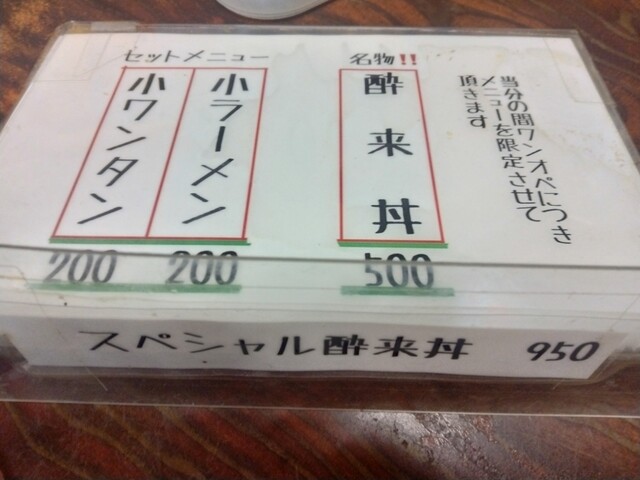 当分の間ワンオペにつき
メニューを限定させて
頂きます
名物!!
酔来丼
500
セットメニュー
小ラーメン
200
小ワンタン
200
スペシャル酔来丼 950